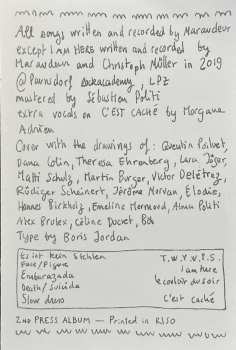 All songs written and recorded by Maraudeur
except I AM HERE written and recorded by
Maraudeur and Christoph Möller in 2019
@ Paunsdorf Rockacademy, LPZ
mastered by Sébastien Politi
extra vocals on C'EST CACHÉ by Morgane
Adrien
Cover with the drawings of: Quentin Poilvet,
Dana Colin, Theresa Ehrenberg, Lara Jäger,
Matti Schulz, Martin Burger, Victor Delétraz,
Rüdiger Scheinert, Jérôme Norvan, Elodie,
Hannes Birkholz, Emeline Mornand, Alma Politi
Alex Brulex, Céline Ducret, Bob
Type by Boris Jordan
Es ist kein Stehlen T.W.Y.V.P.S.
Face/Figure I am here
Embarazada le couloir du soir
Death/Suicida
Slow dress C'est caché
2nd PRESS ALBUM — Printed in RISO